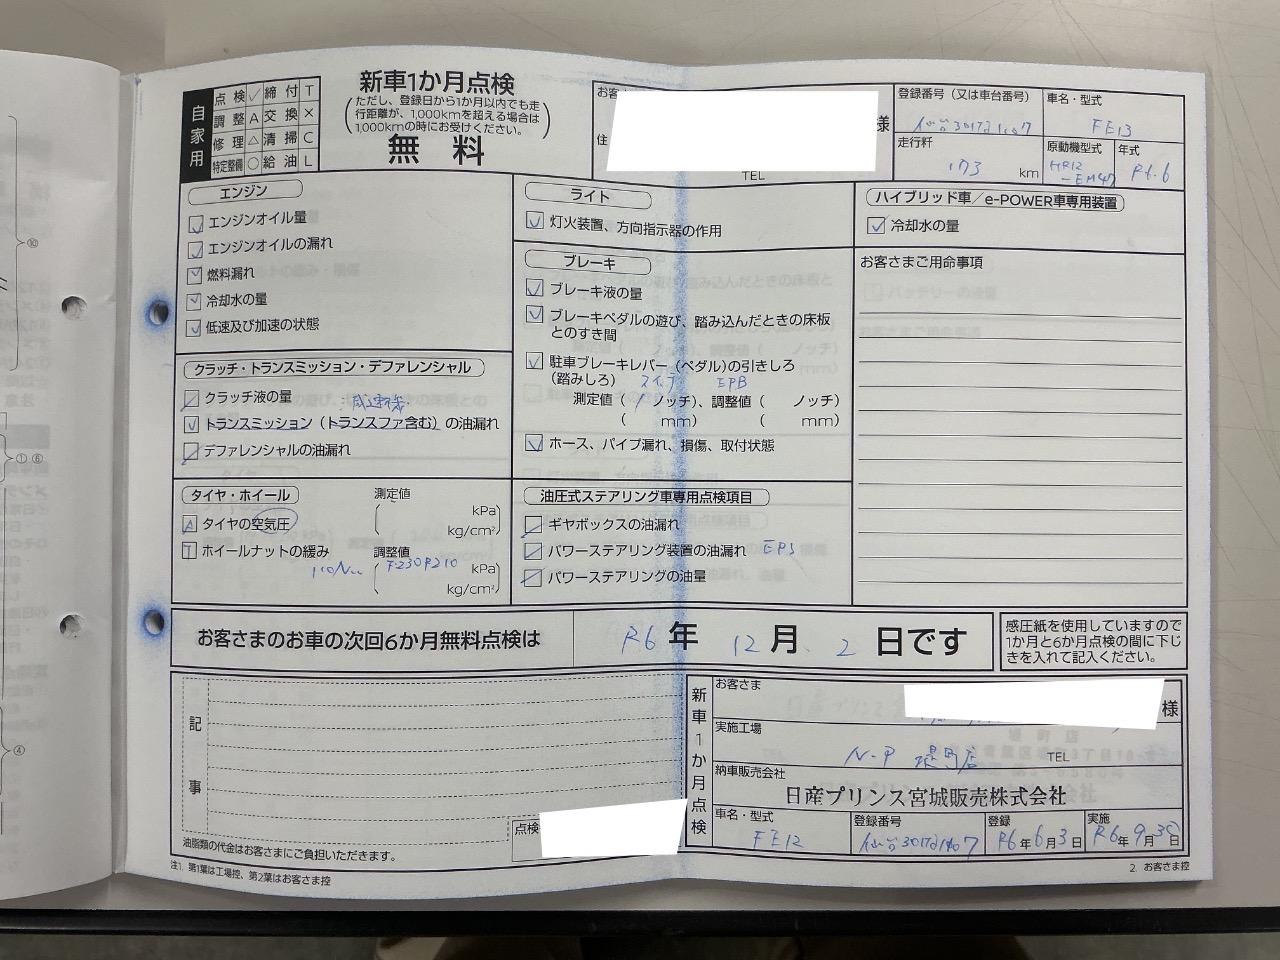 自家用
点検 ✓ 締付 T
調整 A 交換 ×
修理 △ 清掃 C
特定整備 ○ 給油 L
新車1か月点検
(ただし、登録日から1か月以内でも走行距離が、1,000kmを超える場合は1,000kmの時にお受けください。)
無料
お客
住
様
TEL
登録番号(又は車台番号)
仙台301
車名・型式
FE13
走行粁
173 km
原動機型式
HR12
-EM47
年式
R6.6
エンジン
エンジンオイル量
エンジンオイルの漏れ
燃料漏れ
冷却水の量
低速及び加速の状態
クラッチ・トランスミッション・デファレンシャル
クラッチ液の量
減速機
トランスミッション(トランスファ含む)の油漏れ
デファレンシャルの油漏れ
タイヤ・ホイール
測定値
A タイヤの空気圧
kPa
kg/cm²
T ホイールナットの緩み
調整値
110N
F230R210 kPa
kg/cm²
ライト
灯火装置、方向指示器の作用
ブレーキ
ブレーキ液の量
ブレーキペダルの遊び、踏み込んだときの床板とのすき間
駐車ブレーキレバー(ペダル)の引きしろ
(踏みしろ)
EPB
測定値( ノッチ)、調整値( ノッチ)
( mm) ( mm)
ホース、パイプ漏れ、損傷、取付状態
油圧式ステアリング車専用点検項目
ギヤボックスの油漏れ
パワーステアリング装置の油漏れ EPS
パワーステアリングの油量
ハイブリッド車/e-POWER車専用装置
冷却水の量
お客さまご用命事項
お客さまのお車の次回6か月無料点検は
R6年 12月 2日です
感圧紙を使用していますので1か月と6か月点検の間に下じきを入れて記入ください。
記事
点検
油脂類の代金はお客さまにご負担いただきます。
注1. 第1葉は工場控、第2葉はお客さま控
新車1か月点検
お客さま
様
実施工場
N-P 堤町店 TEL
納車販売会社
日産プリンス宮城販売株式会社
車名・型式
FE12
登録番号
仙台301
登録
R6年6月3日
実施
R6年9月30日
2. お客さま控